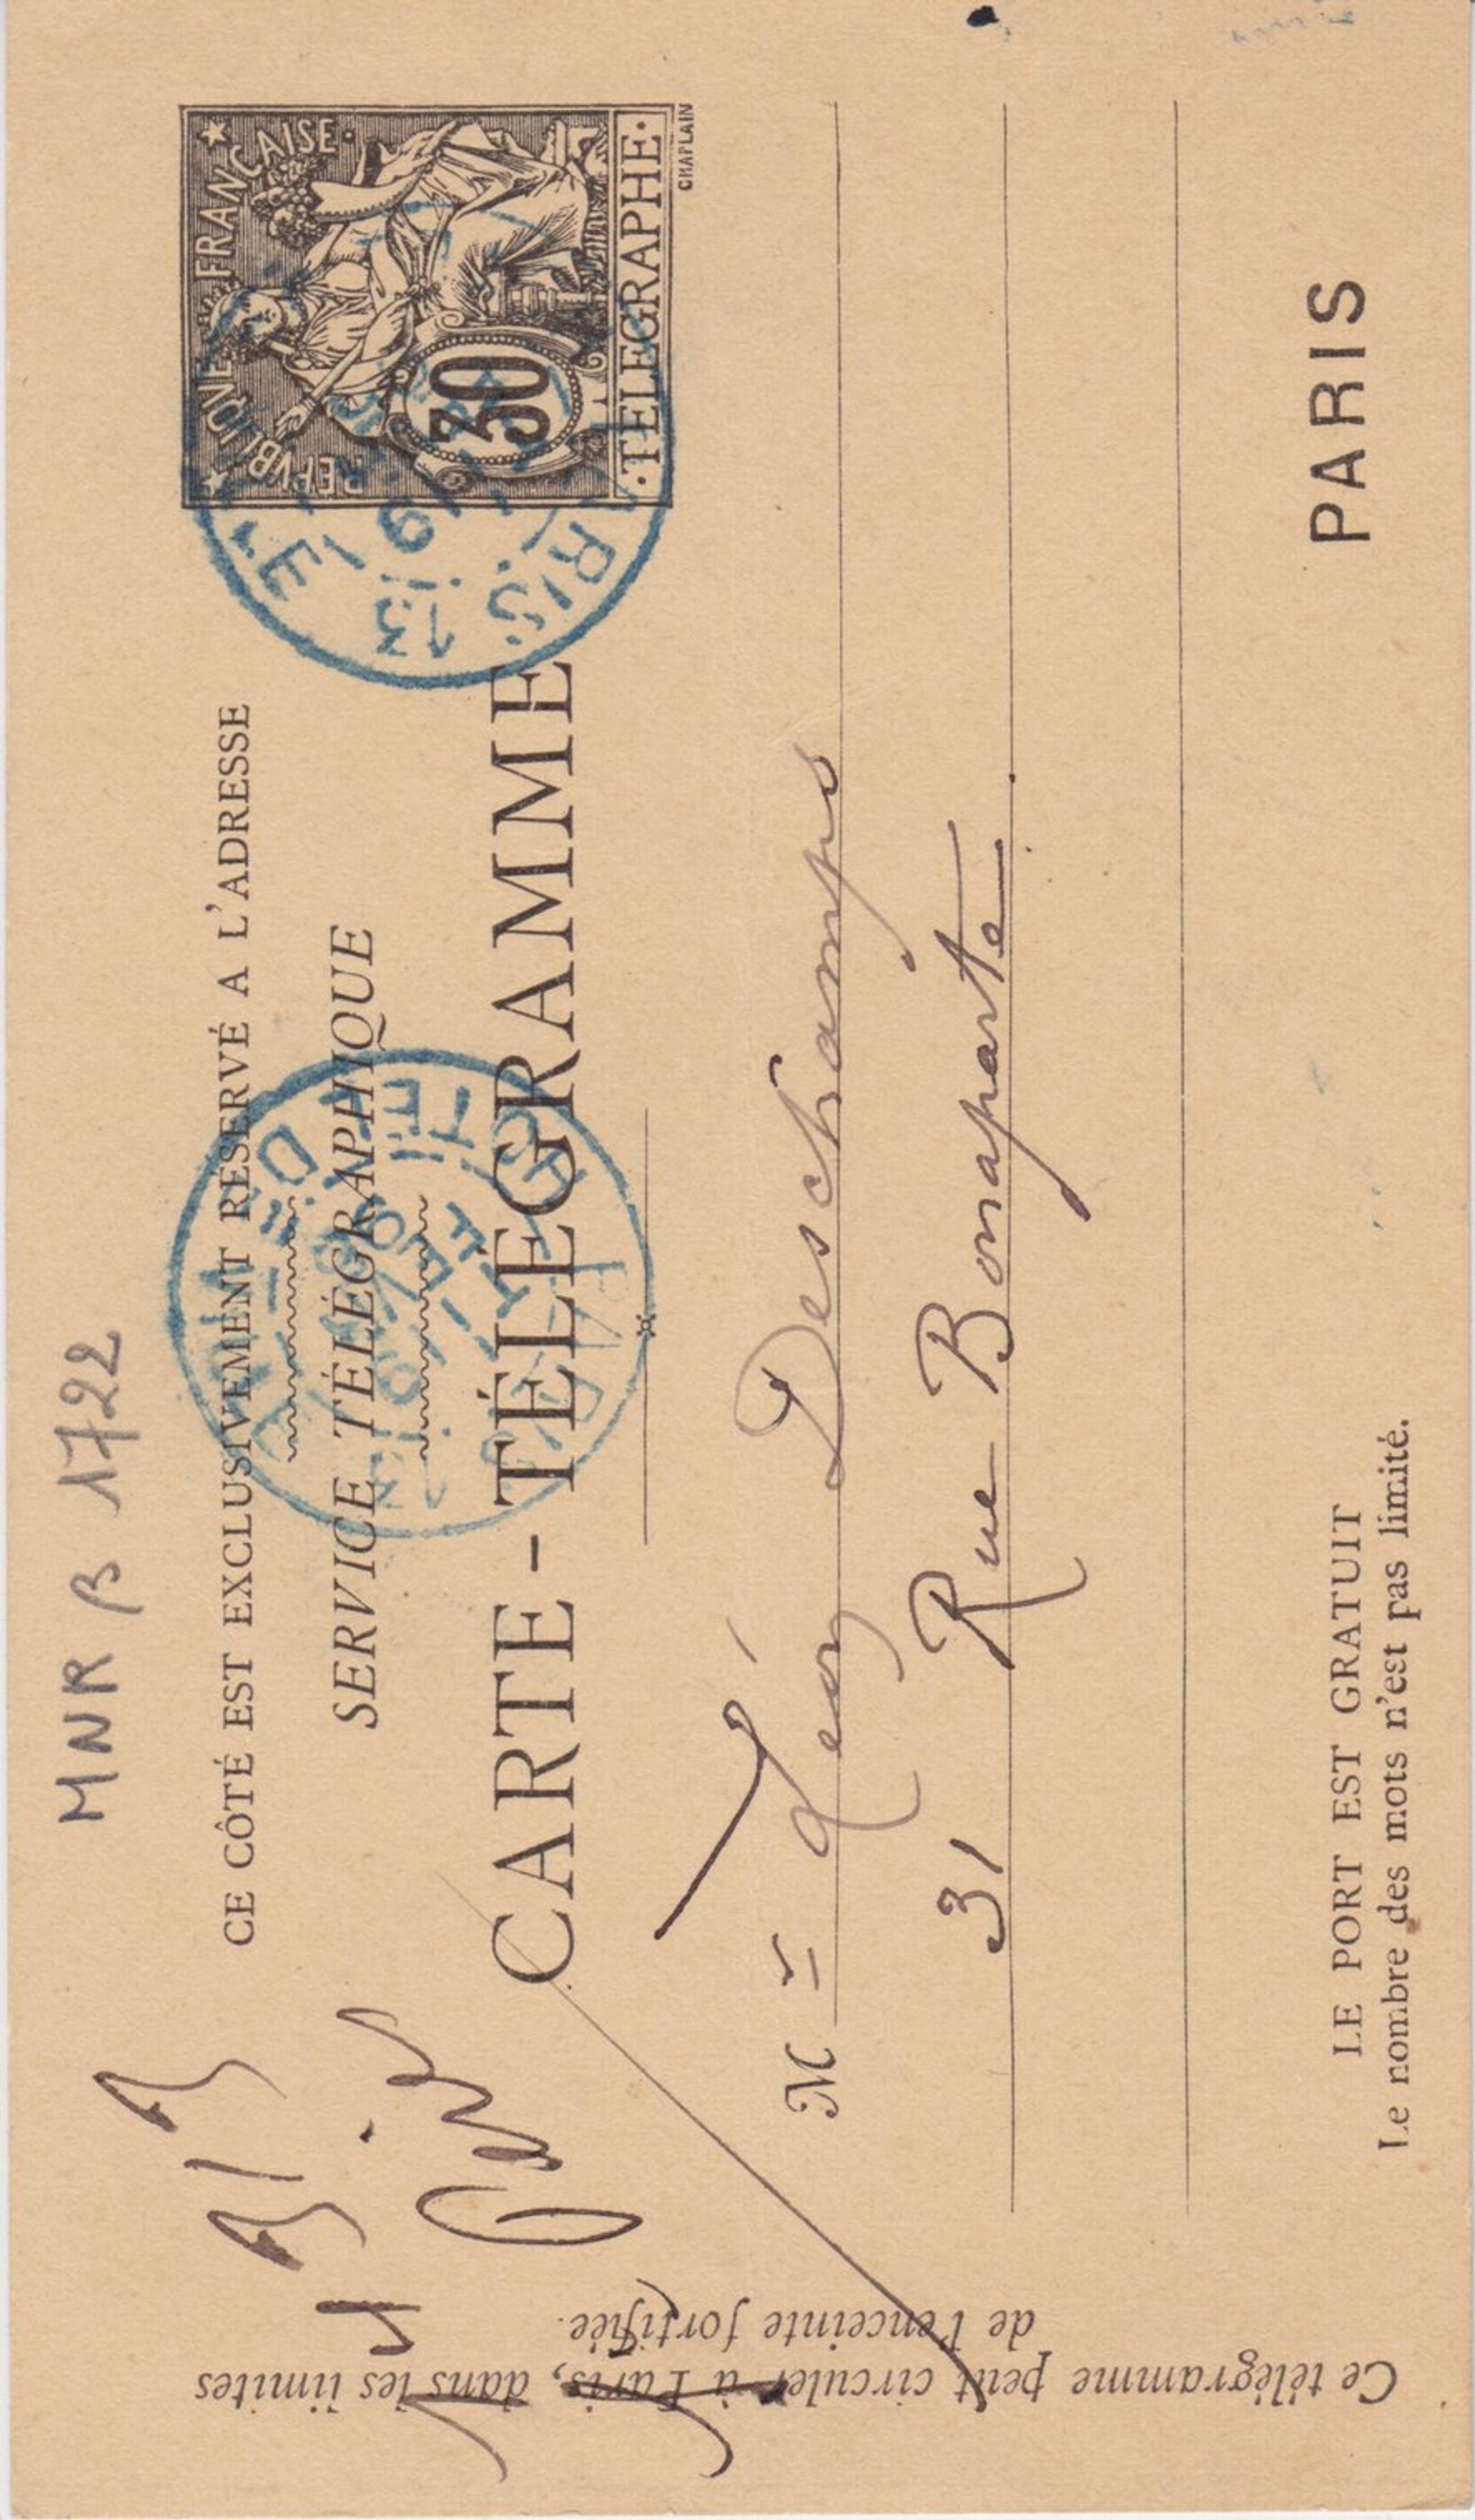 MNR β 1722
CE CÔTÉ EST EXCLUSIVEMENT RÉSERVÉ A L'ADRESSE
SERVICE TÉLÉGRAPHIQUE
CARTE - TÉLÉGRAMME
RÉPVBLIQVE FRANÇAISE
30
TELEGRAPHE
CHAPLAIN
Mr Léon Deschamps
31 Rue Bonaparte
PARIS
LE PORT EST GRATUIT
Le nombre des mots n'est pas limité.
Ce télégramme peut circuler à Paris, dans les limites
de l'enceinte fortifiée.